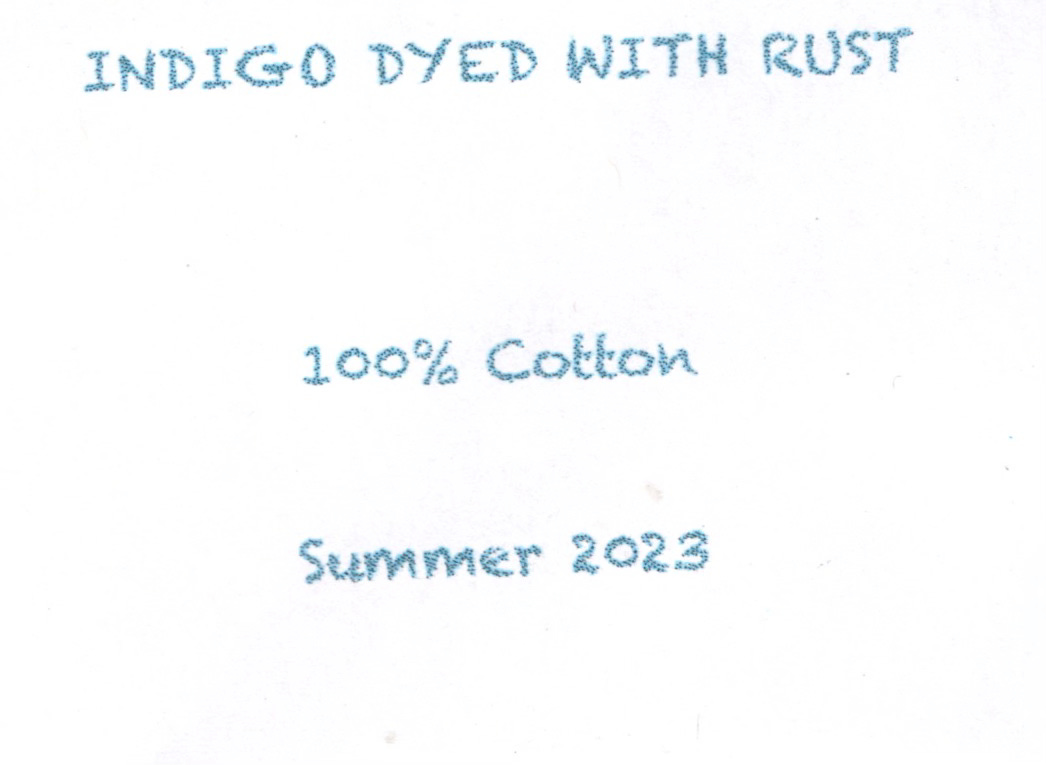 INDIGO DYED WITH RUST
100% Cotton
Summer 2023